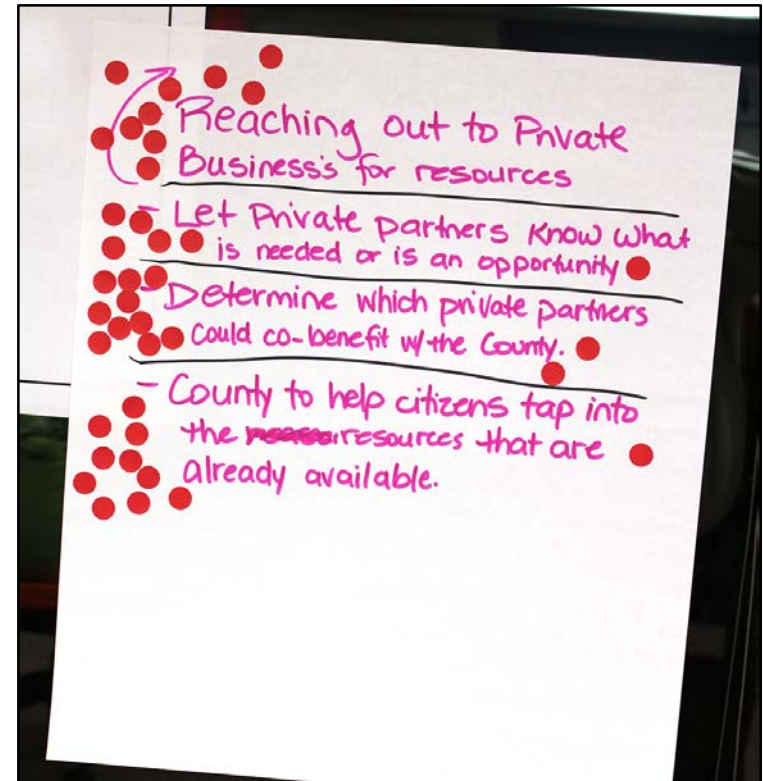 - Reaching out to Private
Business's for resources
- Let Private partners know what
is needed or is an opportunity
- Determine which private partners
could co-benefit w/ the County.
- County to help citizens tap into
the resources that are
already available.